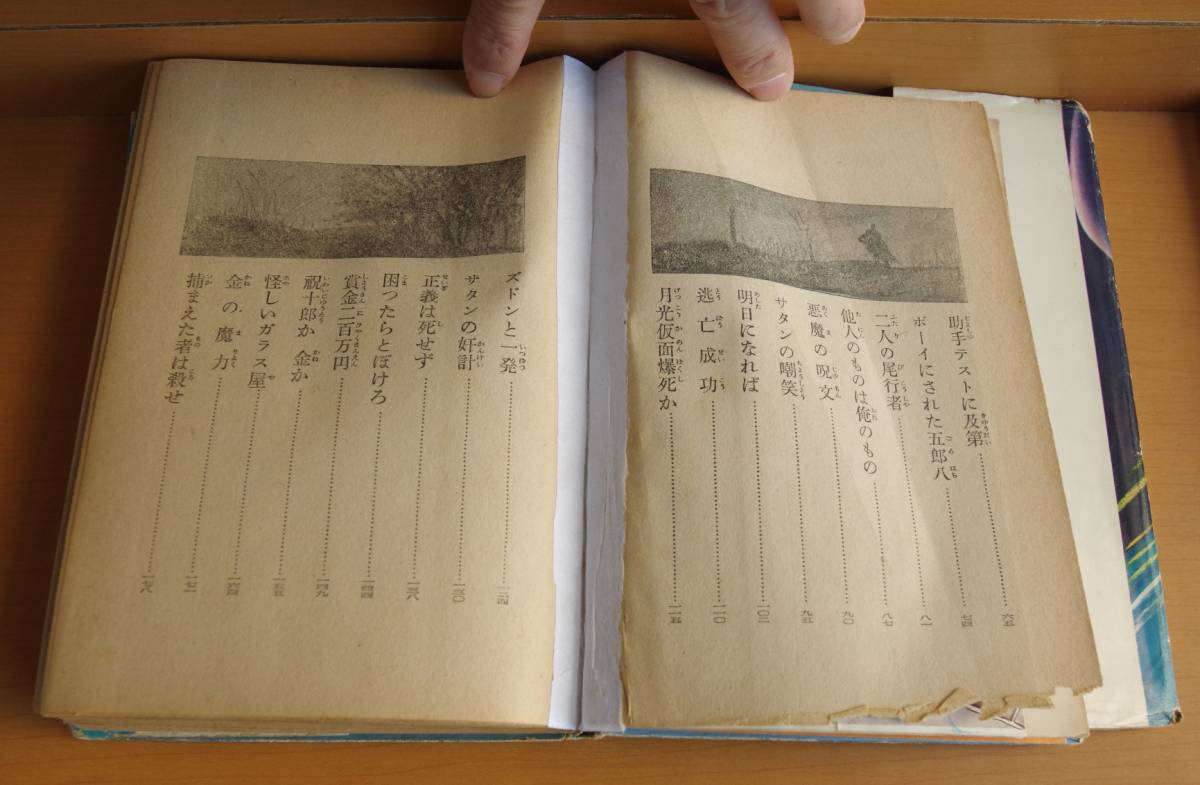 助手テストに及第……六五
ボーイにされた五郎八……七四
二人の尾行者……八一
他人のものは俺のもの……八七
悪魔の呪文……九〇
サタンの嘲笑……九五
明日になれば……一〇三
逃亡成功……一一〇
月光仮面爆死か……一一五
ズドンと一発……一二四
サタンの奸計……一三〇
正義は死せず……一三八
困ったらとぼけろ……一四四
賞金二百万円……一四九
祝十郎か 金か……一五五
怪しいガラス屋……一六四
金の魔力……一七二
捕まえた者は殺せ……一七八